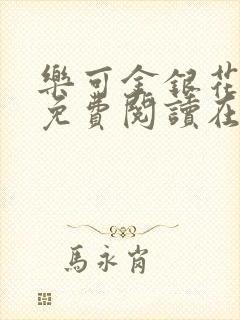 樂可金銀花
免費閱讀在
馬永肖